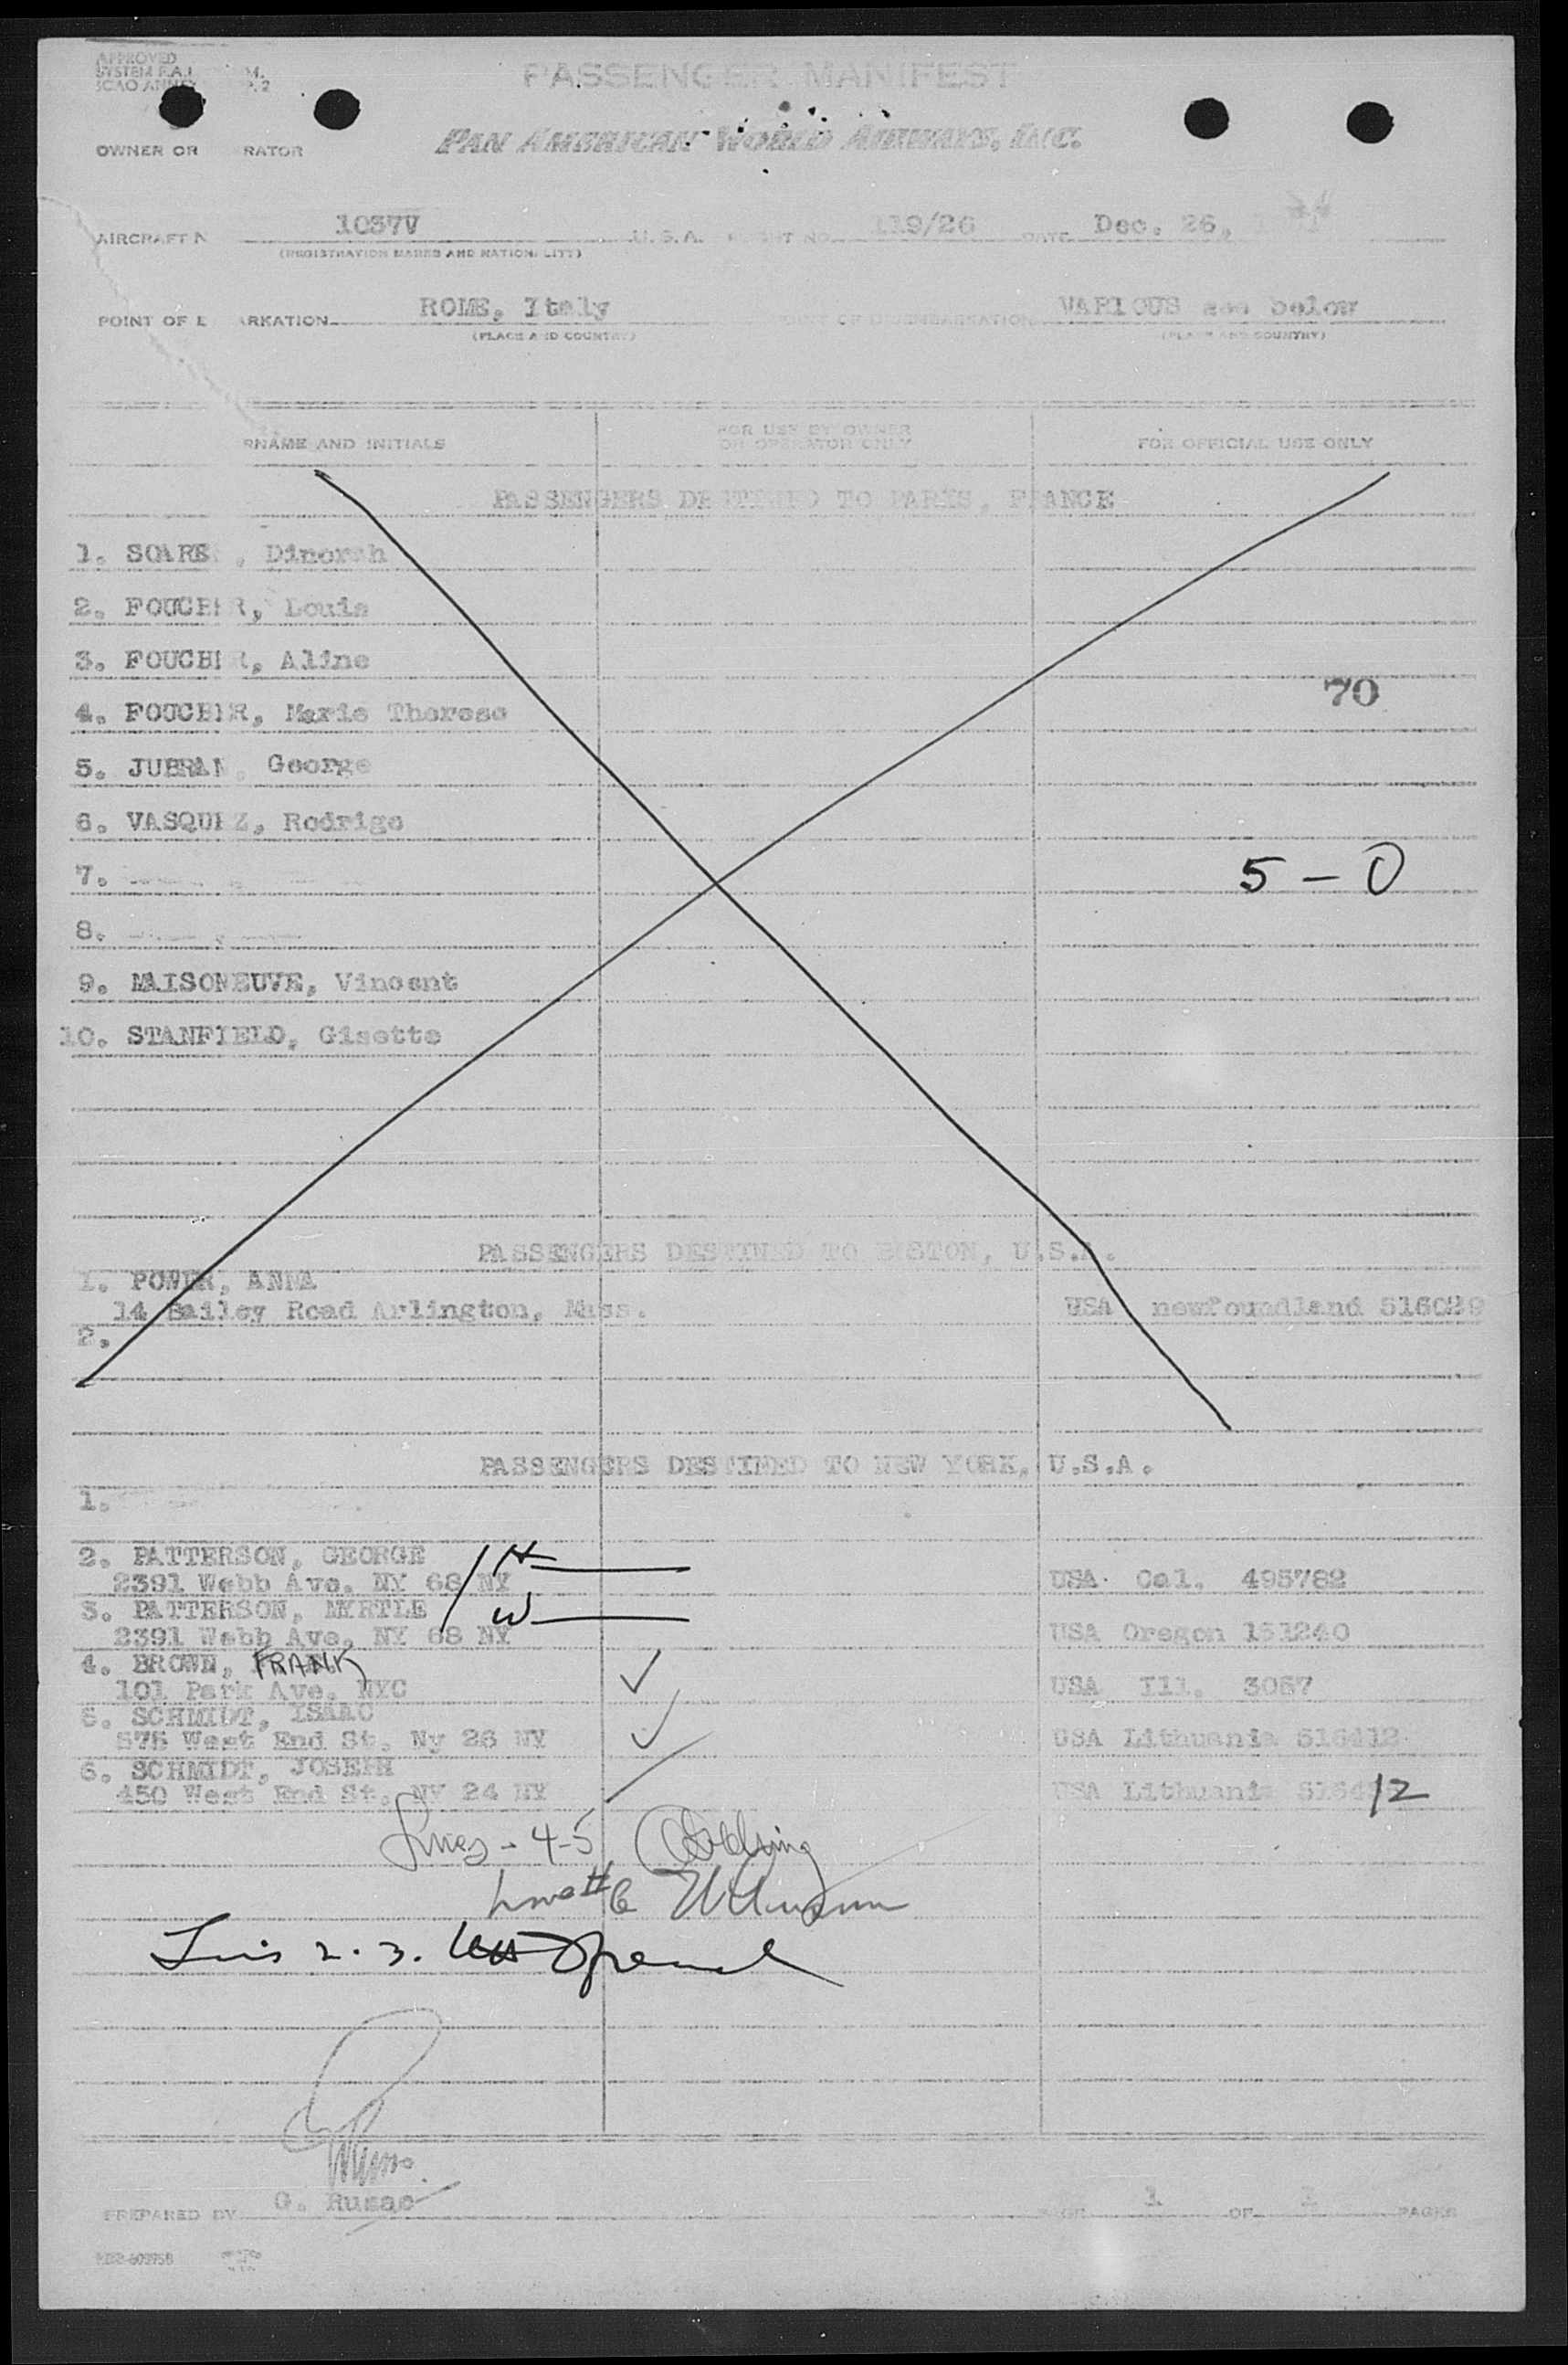 APPROVED
PASSENGER MANIFEST
PAN AMERICAN WORLD AIRWAYS, INC.
OWNER OR RATOR
AIRCRAFT N 1037V U.S.A. NO. 119/26 DATE Dec. 26,
(REGISTRATION MARKS AND NATIONALITY)
POINT OF E ARKATION ROME, Italy POINT OF DISEMBARKATION VARIOUS see below
(PLACE AND COUNTRY) (PLACE AND COUNTRY)
RNAME AND INITIALS FOR USE BY OWNER OR OPERATOR ONLY FOR OFFICIAL USE ONLY
PASSENGERS DESTINED TO PARIS, FRANCE
1. SOARE , Dinorah
2. FOUCHER, Louis
3. FOUCHER, Aline
70
4. FOUCHER, Marie Therese
5. JUBRAN, George
6. VASQUEZ, Rodrigo
7. 5 - 0
8.
9. MAISONEUVE, Vincent
10. STANFIELD, Gisette
PASSENGERS DESTINED TO BOSTON, U.S.A.
1. POWER, ANNA
14 Bailey Road Arlington, Mass. USA newfoundland 516029
2.
PASSENGERS DESTINED TO NEW YORK, U.S.A.
1.
2. PATTERSON, GEORGE H
2391 Webb Ave. NY 68 NY USA Cal. 495782
3. PATTERSON, MYRTLE W
2391 Webb Ave. NY 68 NY USA Oregon 151240
4. BROWN, FRANK
101 Park Ave. NYC USA Ill. 3057
5. SCHMIDT, ISAAC
575 West End St. Ny 26 NY USA Lithuania 516412
6. SCHMIDT, JOSEPH
450 West End St. NY 24 NY USA Lithuania 12
Lines - 4-5
Line # 6
2. 3.
PREPARED BY G. Rusac 1 OF 1 PAGES